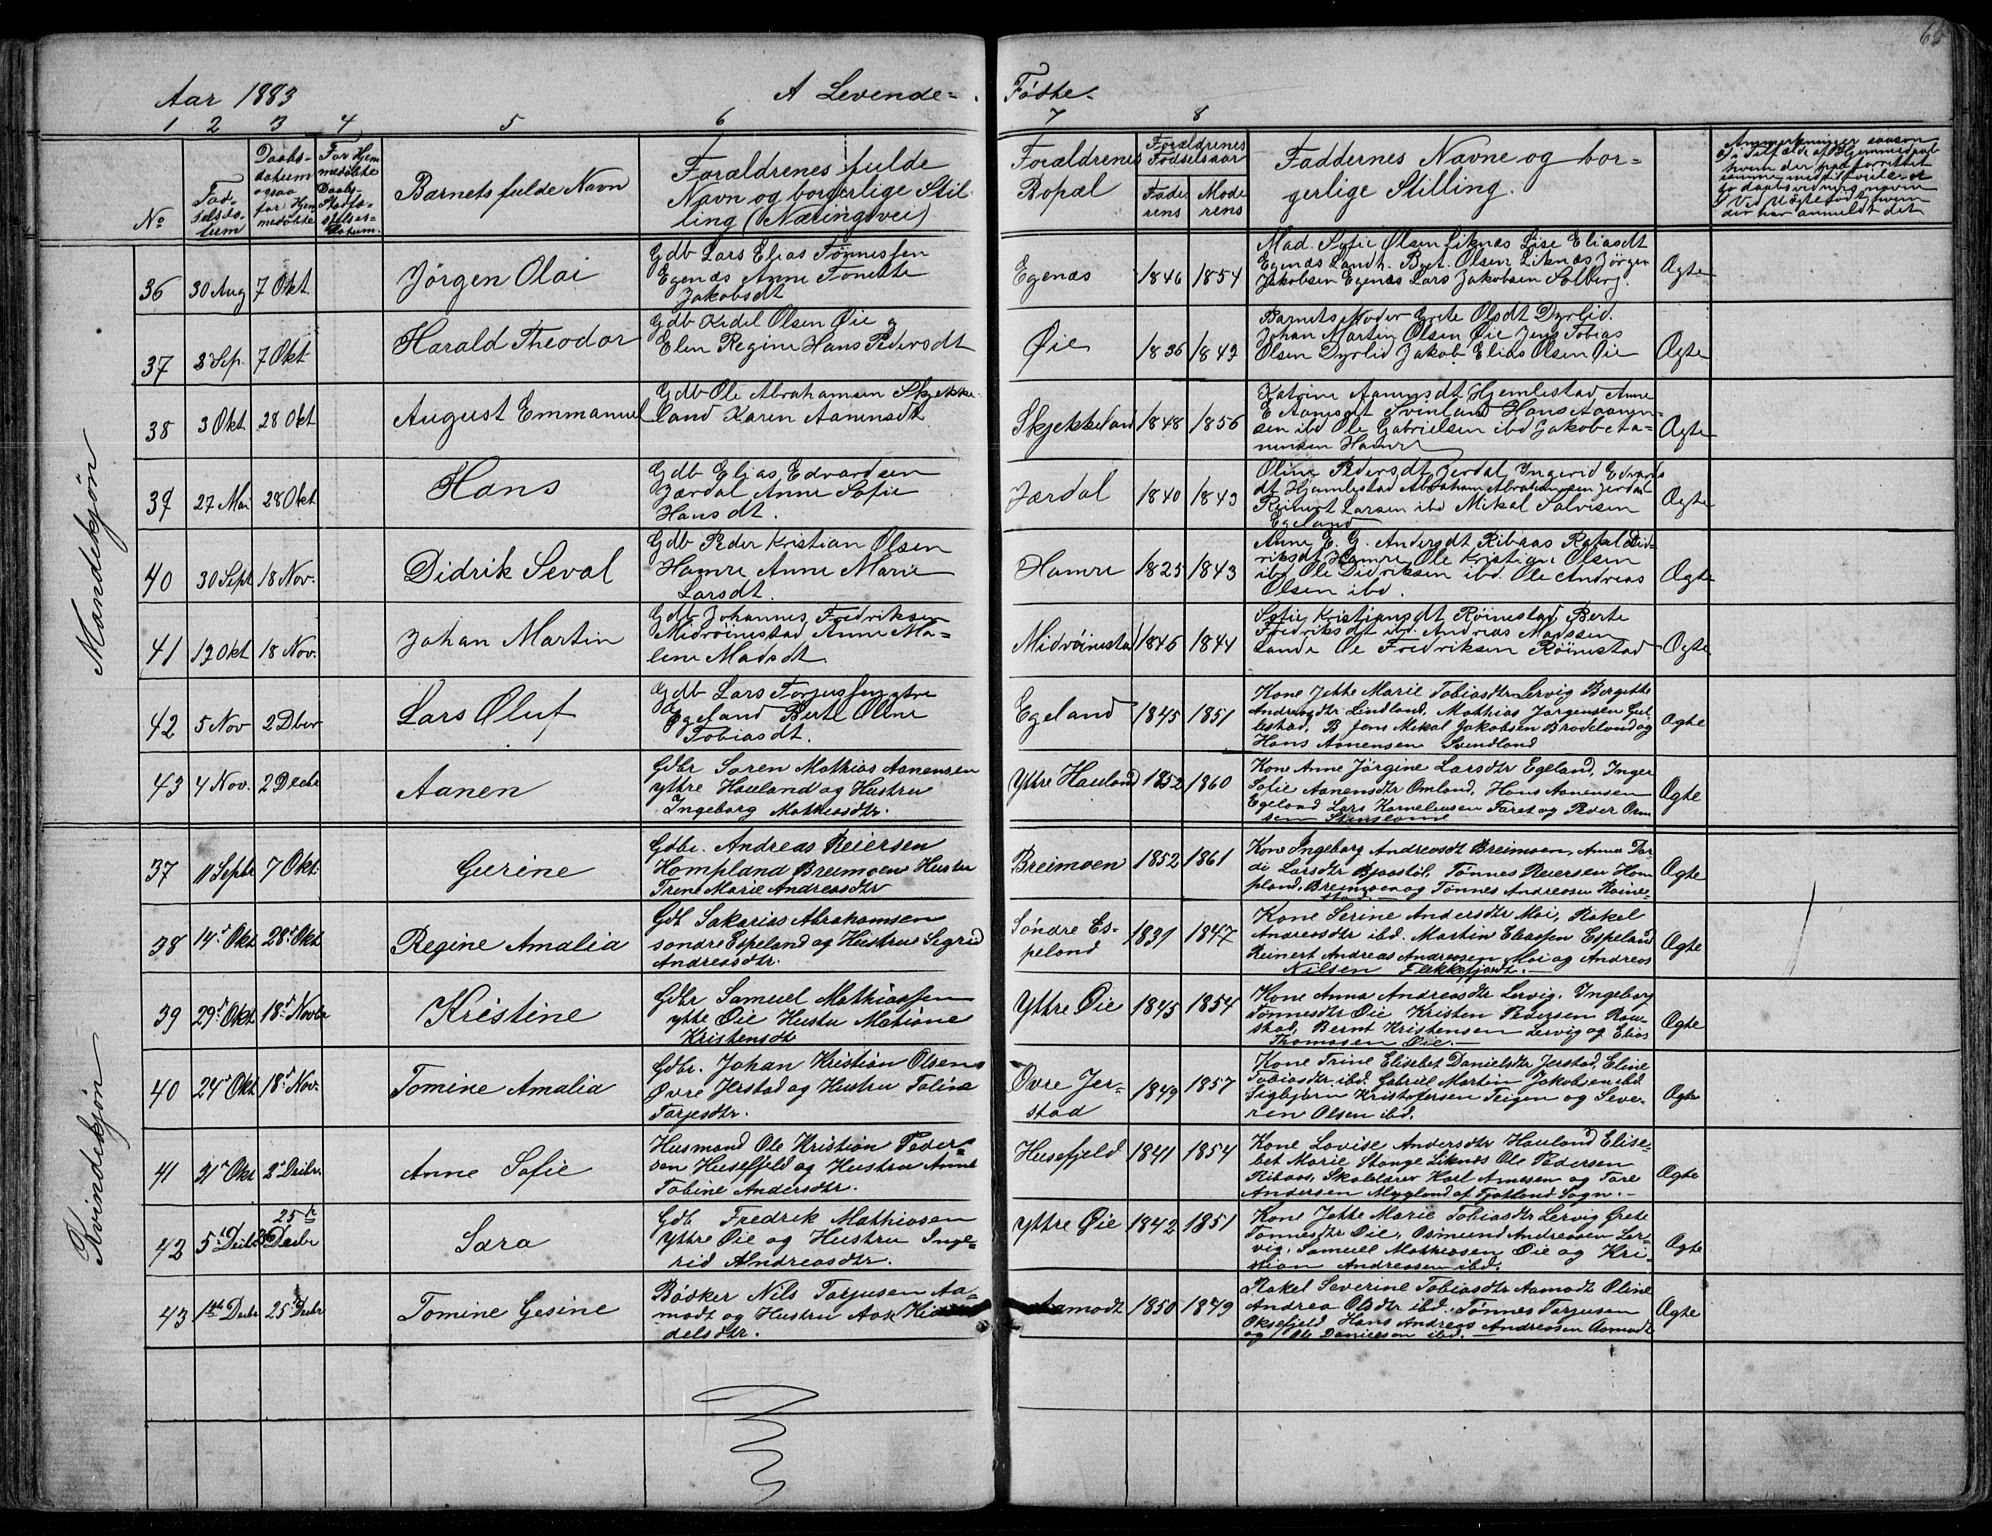 65
Aar 1883
A Levende-
Fødte.
1 2 3 4 5 6 7 8
No
Fød-
selsda-
tum
Daabs-
datum
ogsaa
for Hjem
medøbte
For Hjem
medøbte
Daabs-
Stadfæ-
stelses-
Datum.
Barnets fulde Navn
Forældrenes fulde
Navn og borgerlige Stil-
ling (Næringsvei)
Forældrenes
Bopæl
Forældrenes
Fødselsaar
Fade
rens
Mode
rens
Faddernes Navne og bor-
gerlige Stilling.
Anmerkninger saasom
Mandekjøn
36 30 Aug 7 Okt. Jörgen Olai
Gdb Lars Elias Tönnessen
Egenæs Anne Tonette
Jakobsdt
Egenæs 1846 1854
Mad. Sofie Ölsen Liknæs Lise Eliasdt
Egenæs Landh. Bert. Olsen Liknæs Jörgen
Jakobsen Egenæs Lars Jakobsen Solberg.
Ægte
37 2 Sep. 7 Okt Harald Theodor
Gdb Kedel Olsen Øie og
Elen Regine Hans Pedersdt
Øie 1836 1842
Barnets Moder Grete Olsdt Dyrlid.
Johan Martin Olsen Øie Jens Tobias
Olsen Dyrlid Jakob Elias Olsen Øie
Ægte
38 3 Okt 28 Okt August Emmanuel
Gdb Ole Abrahamsen Skjekke-
land Karen Aanensdt
Skjekkeland 1848 1856
Katrine Aanensdt Hjemlestad, Anne
E Aanesdt Svinland Hans Aanen-
sen ibd Ole Gabrielsen ibd Jakob Aa-
nensen Hamre
Ægte
39 27 Mai 28 Okt Hans
Gdb Elias Edvardsen
Jærdal Anne Sofie
Hansdt.
Jærdal 1840 1843
Oline Pedersdt Jerdal Ingerid Edvards
dt Hjemlestad Abraham Abrahamsen Jerdal
Reinert Larsen ibd Mikal Salvesen
Egeland
Ægte
40 30 Sept 18 Nov. Didrik Seval
Gdb Peder Kristian Ölsen
Hamre Anne Marie
Larsdt.
Hamre 1825 1843
Anne E. G. Andersdt Ribaas Rakel Did-
riksdt Hamre Ole Kristian Olsen
ibd Ole Didriksen ibd. Ole Andreas
Olsen ibd.
Ægte
41 12 Okt 18 Nov. Johan Martin
Gdb Johannes Fredriksen
Midröinestad Anne Ma-
lene Madsdt
Midröinestad 1846 1844
Sofie Kristiansdt Röinestad Berte
Fredriksdt ibd. Andreas Madssen
Lande Ole Fredriksen Röinestad
Ægte
42 5 Nov 2 Dber Lars Öluf
Gdb Lars Torjussen ytre
Egeland Berte Oline
Tobiasdt.
Egeland 1845 1851
Kone Jette Marie Tobiasdtr Lervig Bergitte
Andreasdtr Lindland, Mathias Jørgensen Gul-
lestad, B. Jens Mikal Jakobsen Brodeland og
Hans Aanensen Svindland
Ægte
43 4 Nov. 2 Decbr Aanen
Gdbr Søren Mathias Aanensen
Yttre Hauland og Hustru
Ingeborg Mathiasdtr.
Yttre Hauland 1852 1860
Kone Anne Jörgine Larsdtr Egeland, Inger
Sofie Aanensdtr Omland, Hans Aanensen
Egeland Lars Korneliusen Faret og Peder Om
sen Stenslome
Ægte
Kvindekjøn
37 11 Septbr 7 Okt. Gurine
Gdbr. Andreas Reiersen
Hompland Breimoen Hustru
Trine Marie Andreasdtr
Breimoen 1852 1861
Kone Ingeborg Andreasdt Breimoen, Anna Tor-
di Larsdtr Bjaastöl, Tönnes Reiersen Hom
pland, Breimoen og Tönnes Andreasen Röine-
stad.
Ægte
38 14d Okt 28d Okt Regine Amalia
Gdb Sakarias Abrahamsen
søndre Espeland og Hustru Sigrid
Andreasdtr.
Søndre Es-
peland
1831 1847
Kone Serine Andersdtr Moi, Rakel
Andreasdtr ibd. Martin Eliassen Espeland
Reinert Andreas Andreasen Moi og Andreas
Nilsen Flekkefjord.
Ægte
39 29d Okt 18d Novbr Kristine
Gdbr Samuel Mathiassen
ytte Øie Hustru Matione
Kristensdtr
Yttre Øie 1845 1854
Kone Anna Andreasdtr Lervig, Ingeborg
Tønnesdtr Øie Kristen Pedersen Røi-
stad, Bernt Kristensen Lervig og Elias
Thomasen Øie.
Ægte
40 24d Okt 18d Nov. Tomine Amalia
Gdbr. Johan Kristian Olsen
Øvre Jerstad og Hustru Tolina
Torjesdtr.
Øvre Jer-
stad
1849 1857
Kone Trine Elisebet Danielsdtr Jerstad, Eline
Tobiasdtr ibd. Gabriel Martin Jakobsen ibd
Sigbjørn Kristofersen Teigen og Seve-
ren Olsen ibd.
Ægte
41 21d Okt 2d Decbr. Anne Sofie
Husmand Ole Kristian Peder-
sen Husefjeld og Hustru Anne
Tobine Andersdtr.
Husefjeld 1841 1854
Kone Lovise Andersdtr Hauland Elise-
bet Marie Stange Liknæs Ole Pedersen
Ribaas, Skolelærer Karl Arnesen og Tore
Andersen Mygland af Fjotland Sogn.
Ægte
42 5d Decbr 25de Decbr Sara
Gdb Fredrik Mathiasen
Yttre Øie og Hustru Inge-
rid Andreasdtr.
Yttre Øie 1842 1851
Kone Jette Marie Tobiasdtr Lervig Grete
Tonnesdtr Øie, Osmund Andreasen Ler-
vig, Samuel Mathiasen Øie og Kri-
stian Andreasen ibd.
Ægte
43 1ste Decbr 25d Decbr Tomine Gesine
Bødker Nils Torjusen Aa-
modt og Hustru Aase
delsdtr.
Aamodt 1850 1849
Rakel Severine Tobiasdtr Aamodt Oline
Andrea Olsdtr ibd. Tønnes Torjusen
Oksefjeld Hans Andreas Andreasen Aamodt
og Ole Danielsen ibd.
Ægte